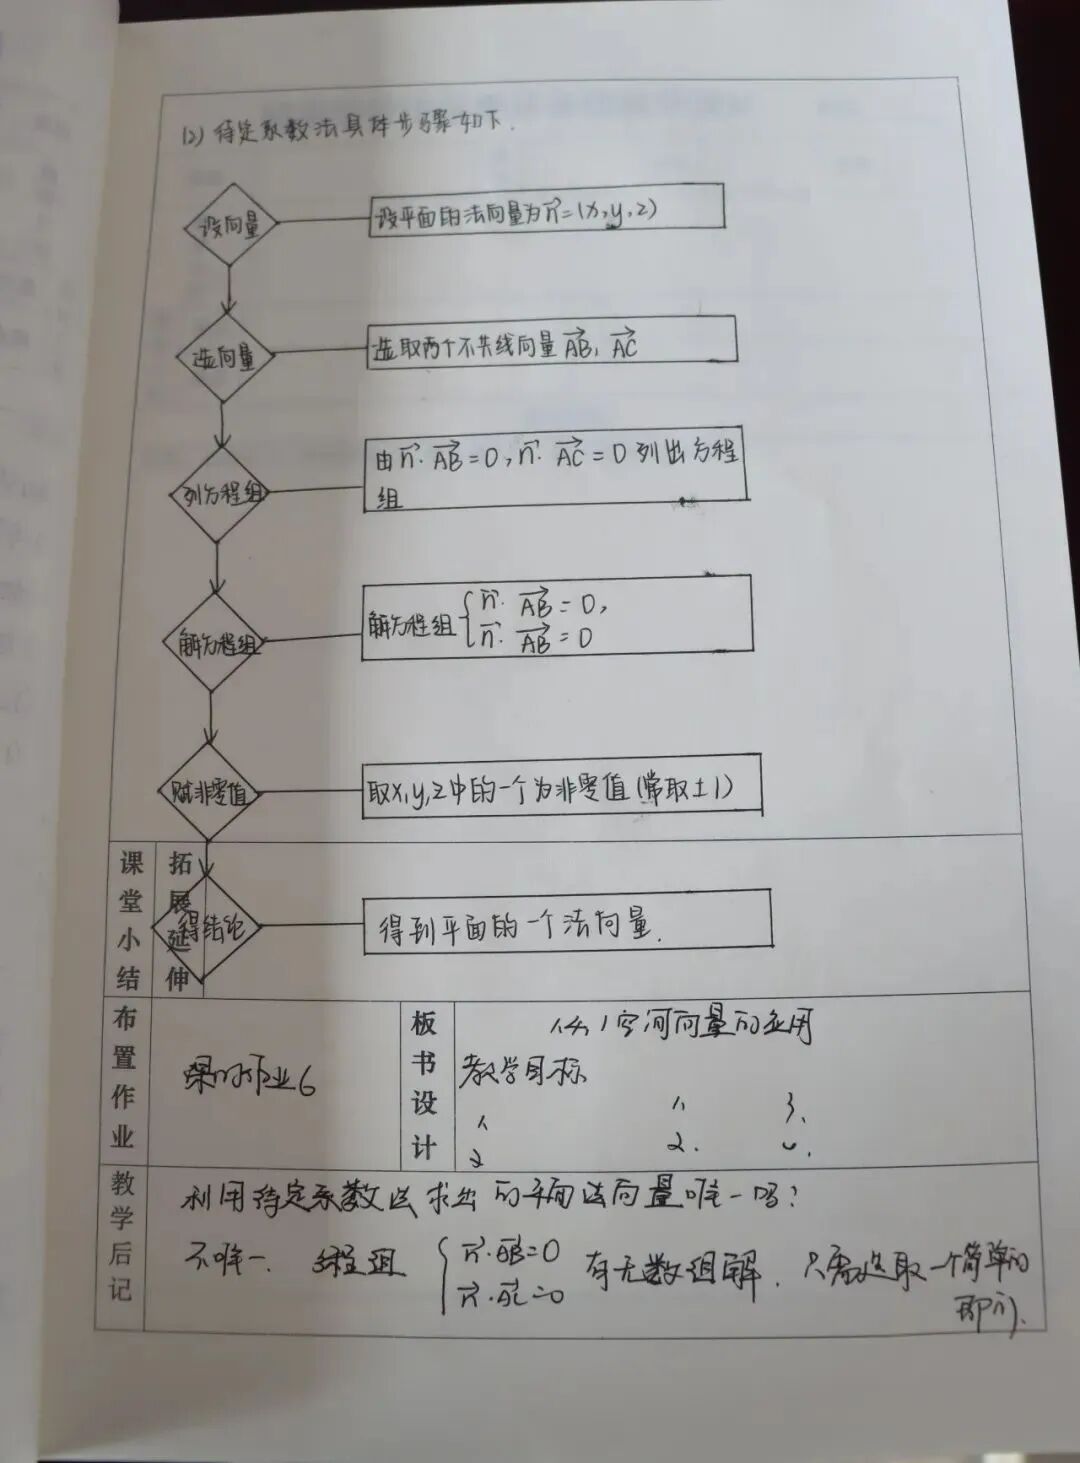 (2) 待定系数法具体步骤如下.
设向量
设平面的法向量为n⃗=(x,y,z)
选向量
选取两个不共线向量AB⃗, AC⃗
列方程组
由n⃗·AB⃗=0,n⃗·AC⃗=0列出方程
组
解方程组
解方程组{n⃗·AB⃗=0,
n⃗·AB⃗=0
赋非零值
取x,y,z中的一个为非零值(常取±1)
课堂小结
拓展延伸
得结论
得到平面的一个法向量.
布置作业
课时作业6
板书设计
1.4.1空间向量的应用
教学目标
1. 3.
2 2.
教学后记
利用待定系数法求出的平面法向量唯一吗?
不唯一. 方程组 {n⃗·AB⃗=0 有无数组解. 只需选取一个简单的
n⃗·AC⃗=0
即可.